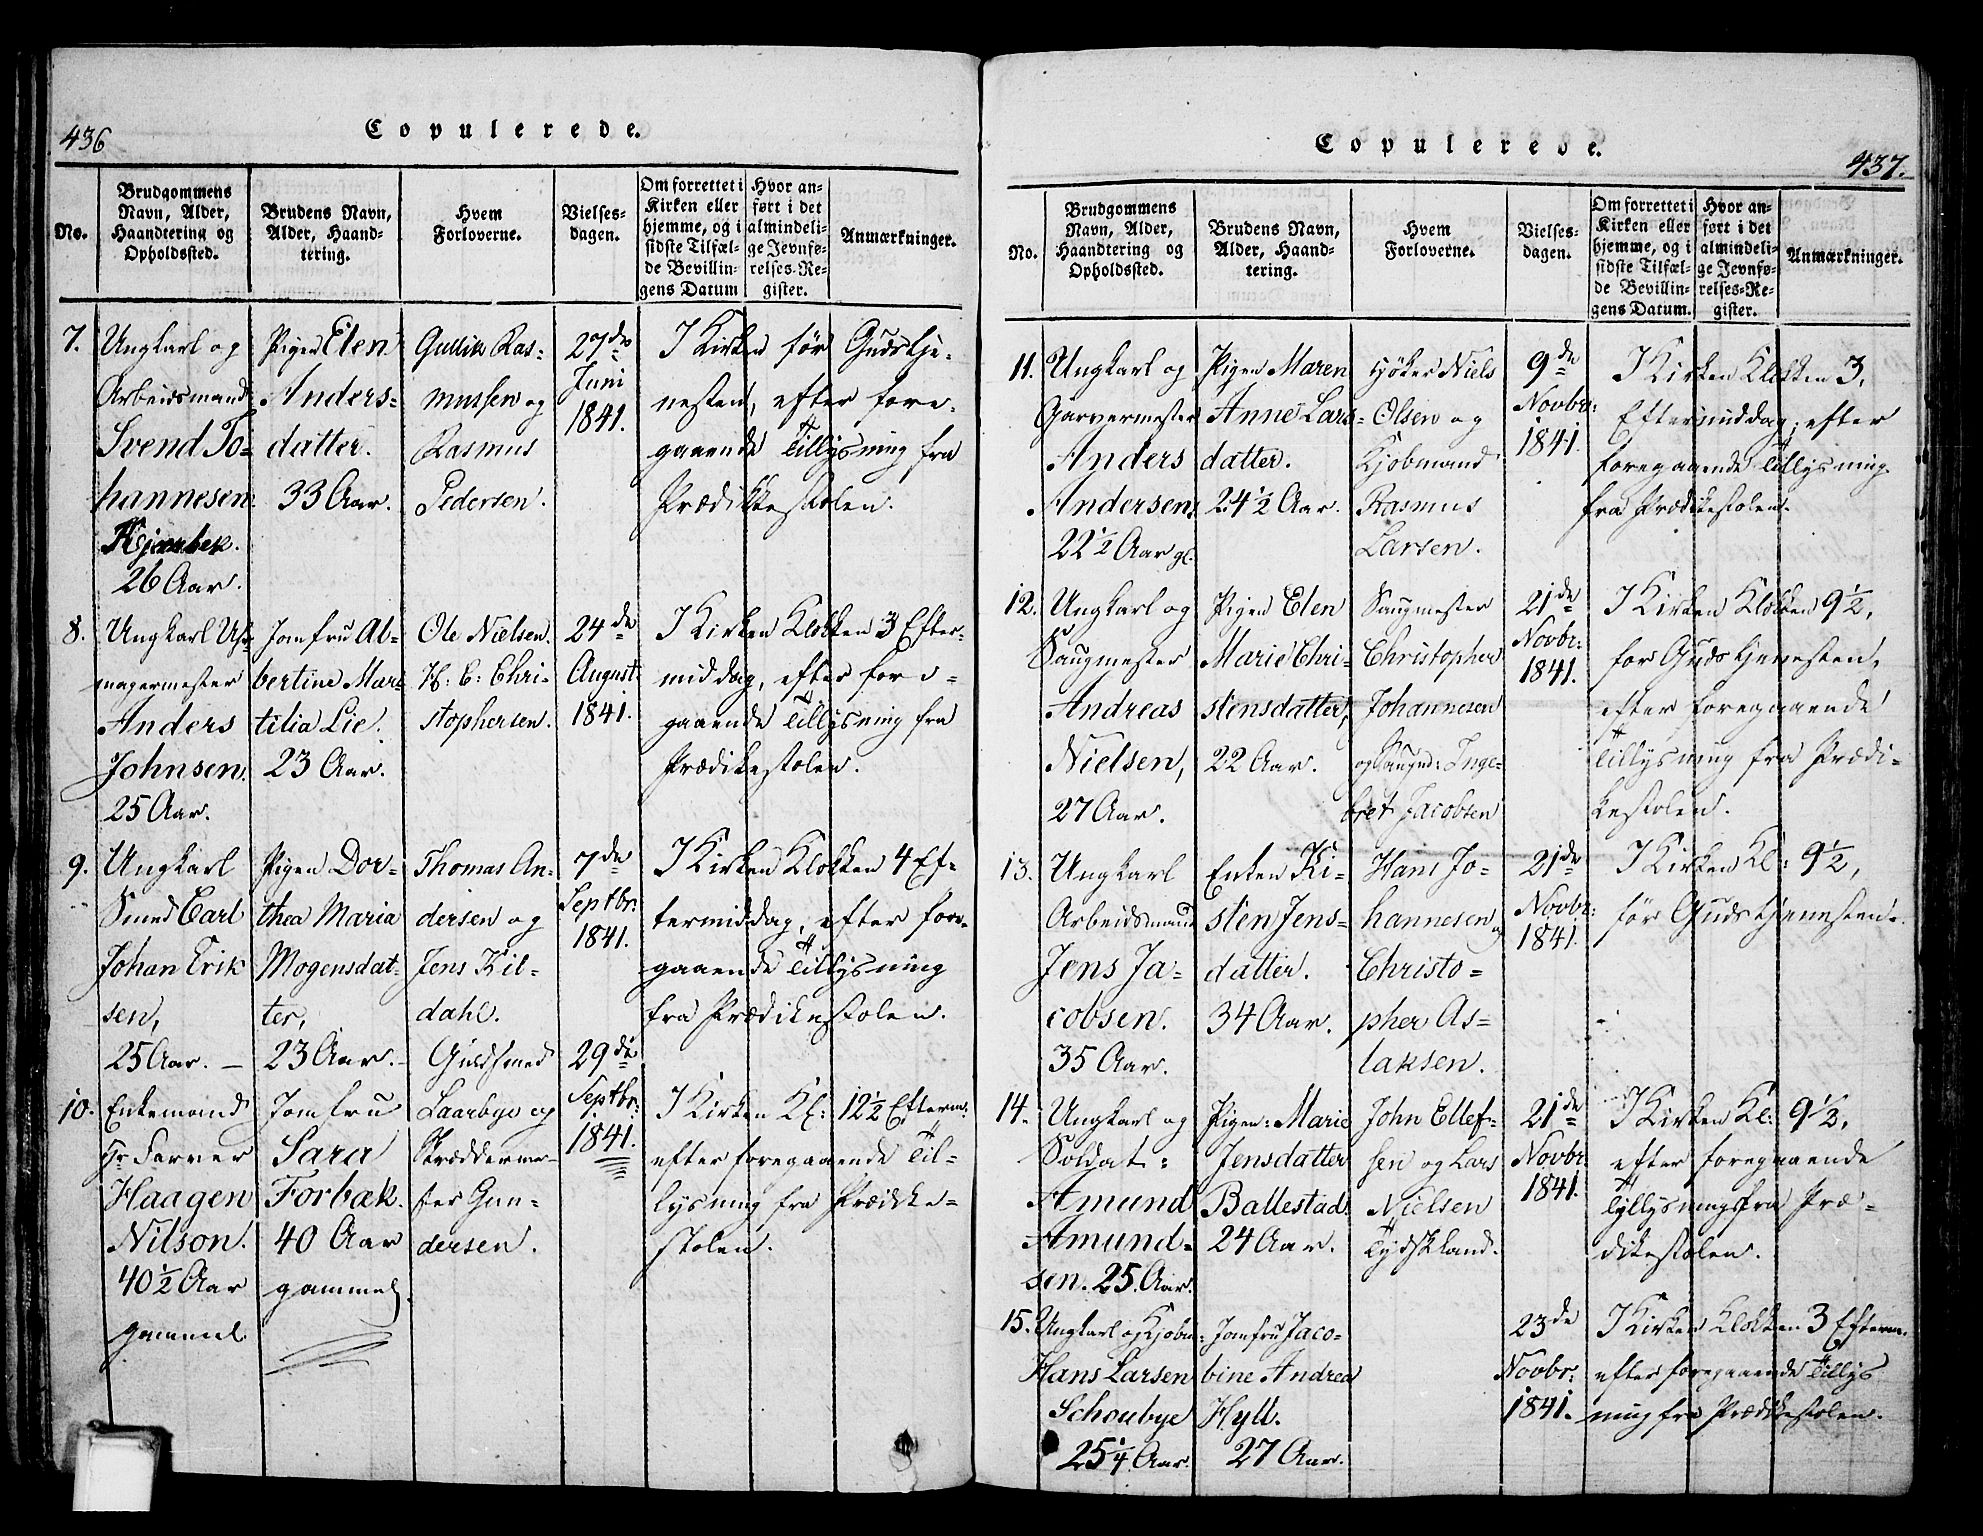 436
Copulerede.
No.
Brudgommens Navn, Alder, Haandtering og Opholdssted.
Brudens Navn, Alder, Haandtering.
Hvem Forloverne.
Vielsesdagen.
Om forrettet i Kirken eller hjemme, og i sidste Tilfælde Bevillingens Datum
Hvor anført i det almindelige Jevnførelses-Register.
Anmærkninger.
7.
Ungkarl og
Arbeidsmand
Svend Jo-
hannesen
26 Aar.
Pigen Elen
Anders-
datter.
33 Aar.
Gullik Ras-
mussen og
Rasmus
Pedersen.
27de
Juni
1841.
I Kirken før Gudstje-
nesten, efter fore-
gaaende Tillysning fra
Prædikkestolen.
8.
Ungkarl Uhr-
magermester
Anders
Johnsen.
25 Aar.
Jomfru Al-
bertine Mar-
tilia Lie.
23 Aar.
Ole Nielsen.
H: C: Chri-
stophersen.
24de
August
1841.
I Kirken Klokken 3 Efter-
middag, efter fore-
gaaende Tillysning fra
Prædikestolen.
9.
Ungkarl
Smed Carl
Johan Erik
sen,
25 Aar. –
Pigen Dor-
thea Maria
Mogensdat-
ter,
23 Aar. –
Thomas An-
dersen og
Jens Kil-
dahl.
7de
Septbr:
1841.
I Kirken Klokken 4 Ef-
termiddag, efter fore-
gaaende Tillysning
fra Prædikestolen.
10.
Enkemand
Hr Farver
Haagen
Nilson.
40 1/2 Aar
gammel.
Jomfru
Sara
Forbæk.
40 Aar
gammel.
Guldsmed
Laarbye og
Skrædderme-
ster Gun-
dersen.
29de
Septbr:
1841.
I Kirken Kl: 12 1/2 Efterm:
efter foregaaende Til-
lysning fra Prædikke-
stolen.
Copulerede.
437.
No.
Brudgommens Navn, Alder, Haandtering og Opholdssted.
Brudens Navn, Alder, Haandtering.
Hvem Forloverne.
Vielsesdagen.
Om forrettet i Kirken eller hjemme, og i sidste Tilfælde Bevillingens Datum.
Hvor anført i det almindelige Jevnførelses-Register.
Anmærkninger.
11.
Ungkarl og
Garvermester
Anders
Andersen,
22 1/2 Aar gl.
Pigen Maren
Anne Lars-
datter.
24 1/2 Aar.
Høker Niels
Olsen og
Kjøbmand
Rasmus
Larsen.
9de
Novbr:
1841.
I Kirken Klokken 3,
Eftermiddag, efter
foregaaende Tillysning
fra Prædikestolen.
12.
Ungkarl og
Saugmester
Andreas
Nielsen,
27 Aar.
Pigen Elen
Marie Chri-
stensdatter,
22 Aar.
Saugmester
Christopher
Johannesen
og Saugm: Inge-
bret Jacobsen
21de
Novbr:
1841.
I Kirken Klokken 9 1/2,
før Gudstjenesten,
efter foregaaende
Tillysning fra Prædi-
kestolen.
13.
Ungkarl
Arbeidsmand
Jens Ja-
cobsen.
35 Aar.
Enken Ki-
sten Jens-
datter.
34 Aar.
Hans Jo-
hannesen og
Christo-
pher As-
laksen.
21de
Novbr:
1841.
I Kirken Kl: 9 1/2,
før Gudstjenesten.
14.
Ungkarl og
Soldat:
Amund
Amund-
sen. 25 Aar.
Pigen: Marie
Jensdatter
Ballestad.
24 Aar.
John Ellef-
sen og Lars
Nielsen
Tydskland.
21de
Novbr:
1841.
I Kirken Kl: 9 1/2,
efter foregaaende
Tyllysning fra Præ-
dikestolen.
15.
Ungkarl og Kjøbm:
Hans Larsen
Schoubye
25 1/4 Aar.
Jomfru Jaco-
bine Andrea
Hyll.
27 Aar.
23de
Novbr:
1841.
I Kirken Klokken 3 Efterm.
efter foregaaende Tillys
ning fra Prædikestolen.